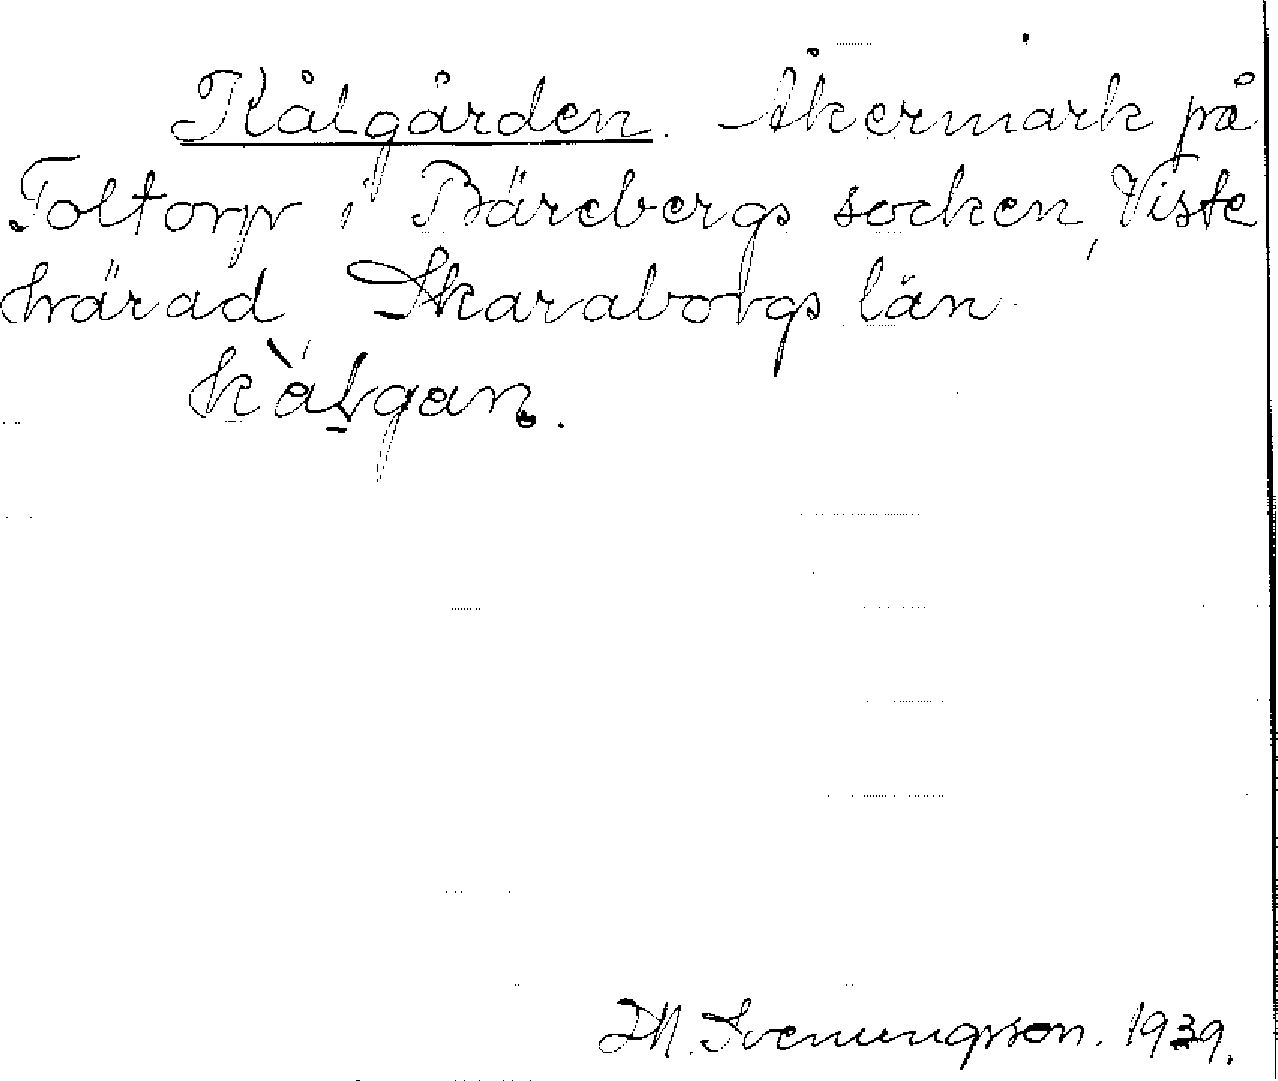 Kålgården. Åkermark på
Foltorp i Bärebergs socken, Viste
härad Skaraborgs län.
kålgan.
M. Svenungsson. 1939.